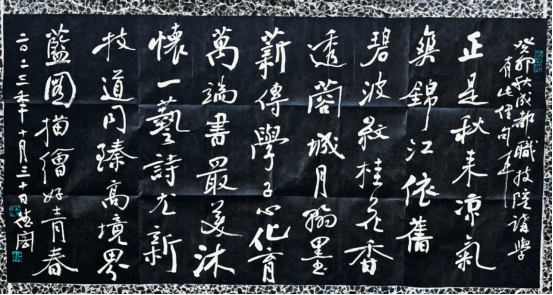 癸卯秋成都職技院講學
有此僅開
正是秋来凉氣
爽錦江依舊
碧波紋桂花香
透蓉城月翰墨
薪傳學子心化育
萬端書最美沐
懷一藝詩尤新
技道同臻高境界
藍圖描繪好青春
二〇二三年十月三十日